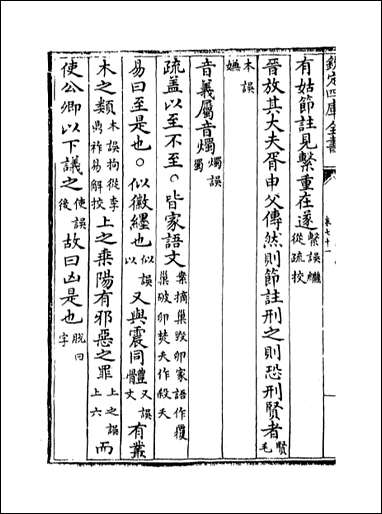 欽定四庫全書
卷七十一
有姑節註見繫重在遂繫誤繼從疏挍
晉放其大夫胥申父傳然則節註刑之則恐刑賢者賢毛
本誤嫵
音義屬音燭燭誤蠋
疏蓋以至不至○皆家語文案摘巢毀卵家語作覆巢破卵焚夭作殺夭
易曰至是也○似徽纆也似誤以又與震同體又誤骨文有叢
木之類木誤拘從李鼎祚易解挍上之乘陽有邪惡之罪上之誤上六而
使公卿以下議之使誤後故曰凶是也脫曰字